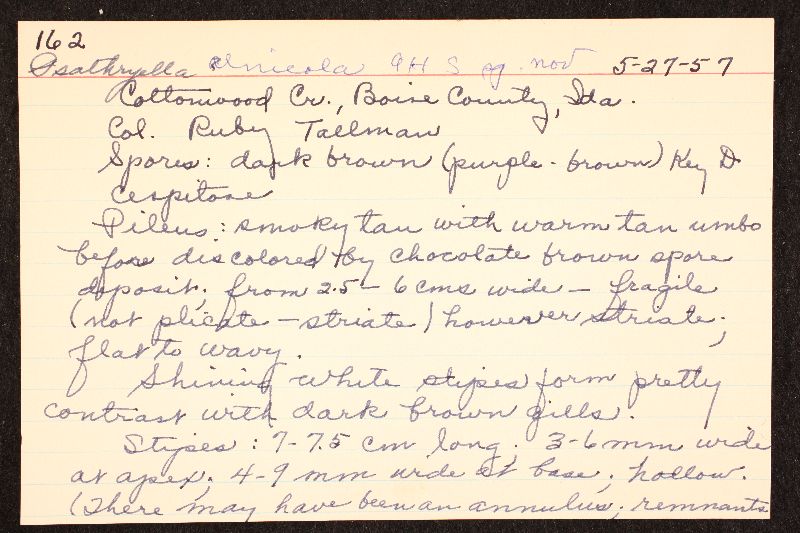 162
Psathyrella alnicola AHS sp. nov 5-27-57
Cottonwood Cr., Boise County, Ida.
Col. Ruby Tallman
Spores: dark brown (purple-brown) Key D
cespitose
Pileus: smoky tan with warm tan umbo
before discolored by chocolate brown spore
deposit; from 2.5 - 6 cms wide - fragile
(not plicate - striate) however striate;
flat to wavy.
Shining white stipes form pretty
contrast with dark brown gills.
Stipes: 7-7.5 cm long; 3-6 mm wide
at apex; 4-9 mm wide at base; hollow.
(There may have been an annulus; remnants